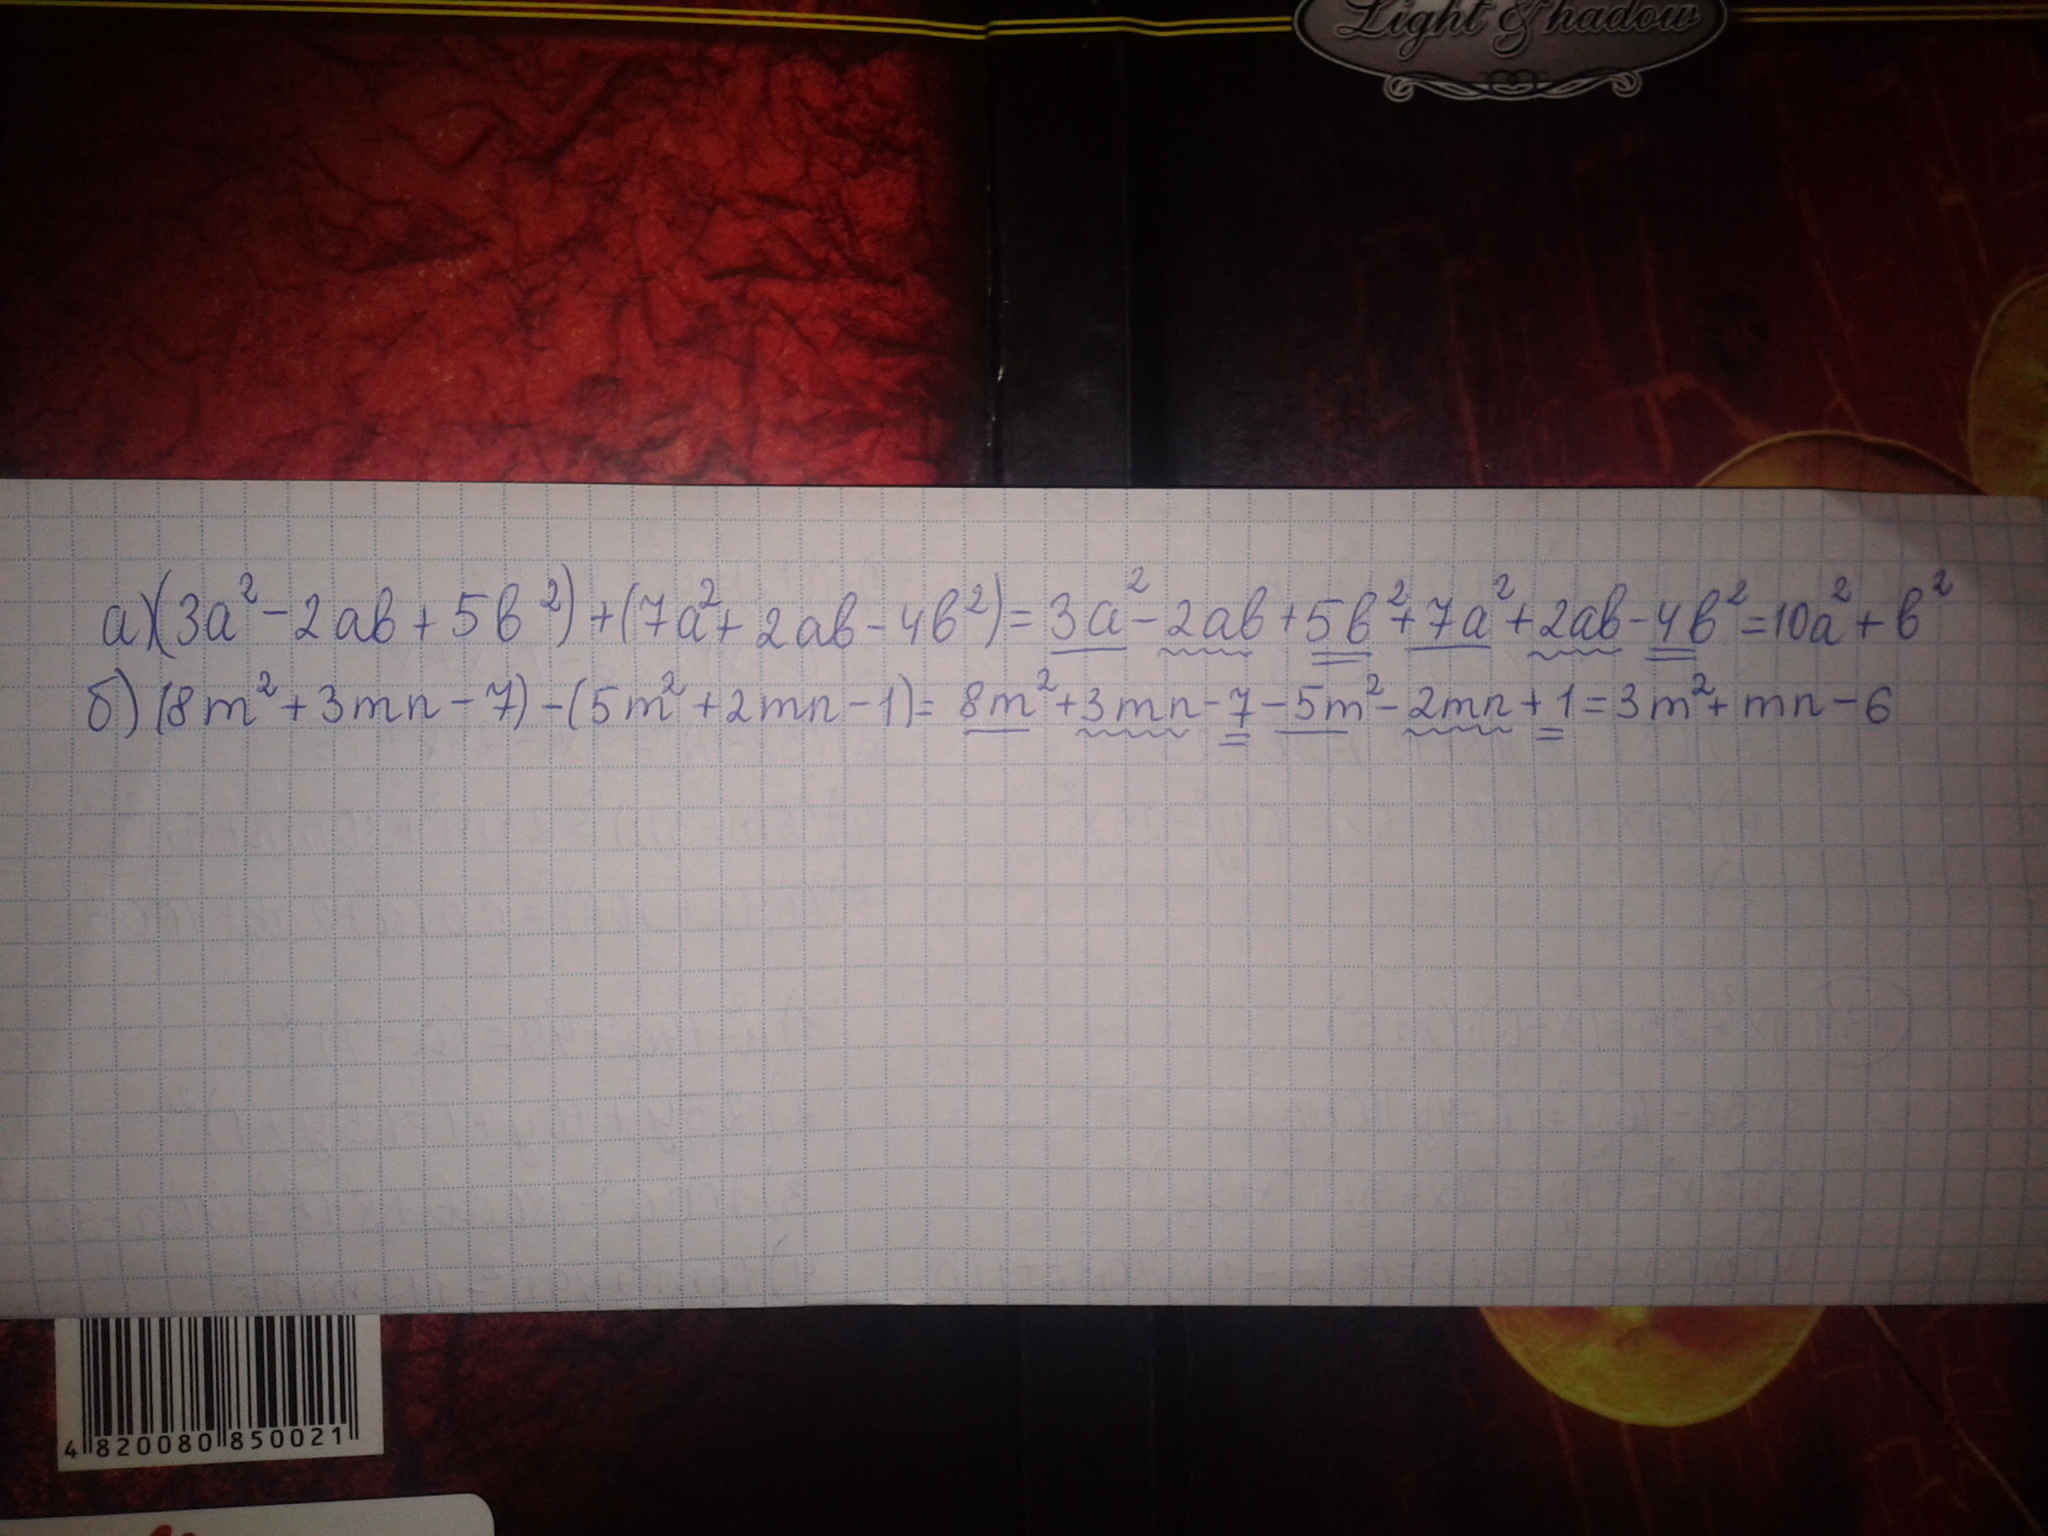 Light & Shadow
а) (3a² - 2ab + 5b²) + (7a² + 2ab - 4b²) = 3a² - 2ab + 5b² + 7a² + 2ab - 4b² = 10a² + b²
б) (8m² + 3mn - 7) - (5m² + 2mn - 1) = 8m² + 3mn - 7 - 5m² - 2mn + 1 = 3m² + mn - 6
4 820080 850021